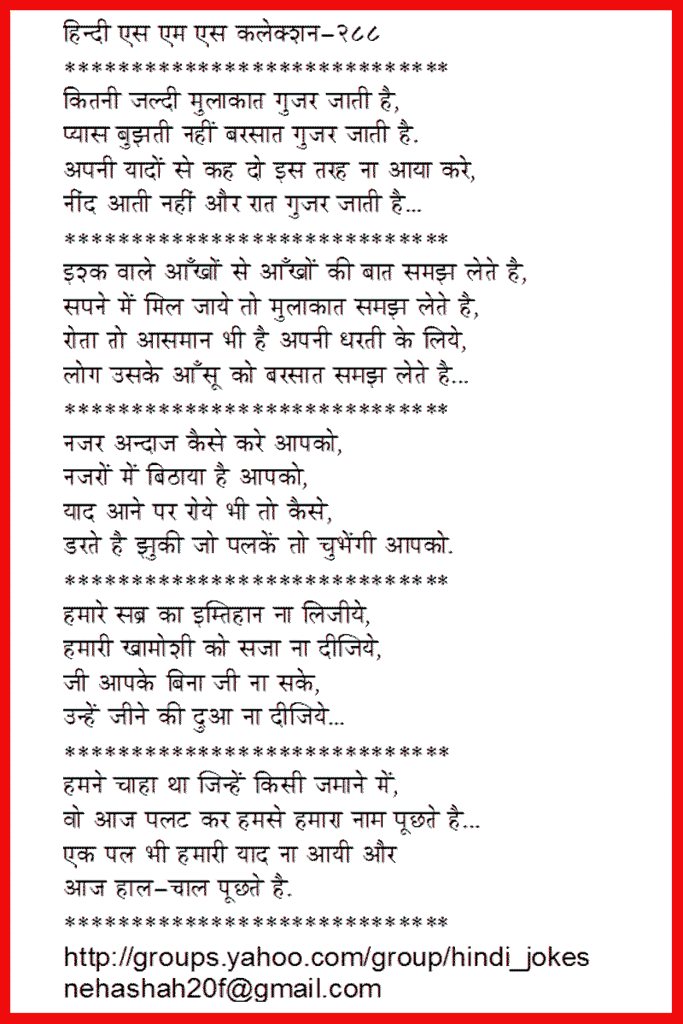 हिन्दी एस एम एस कलेक्शन-२८८
*****************************
कितनी जल्दी मुलाकात गुजर जाती है,
प्यास बुझती नहीं बरसात गुजर जाती है.
अपनी यादों से कह दो इस तरह ना आया करे,
नींद आती नहीं और रात गुजर जाती है...
*****************************
इश्क वाले आँखों से आँखों की बात समझ लेते है,
सपने में मिल जाये तो मुलाकात समझ लेते है,
रोता तो आसमान भी है अपनी धरती के लिये,
लोग उसके आँसू को बरसात समझ लेते है...
*****************************
नजर अन्दाज कैसे करे आपको,
नजरों में बिठाया है आपको,
याद आने पर रोये भी तो कैसे,
डरते है झुकी जो पलकें तो चुभेंगी आपको.
*****************************
हमारे सब्र का इम्तिहान ना लिजीये,
हमारी खामोशी को सजा ना दीजिये,
जी आपके बिना जी ना सके,
उन्हें जीने की दुआ ना दीजिये...
*****************************
हमने चाहा था जिन्हें किसी जमाने में,
वो आज पलट कर हमसे हमारा नाम पूछते है...
एक पल भी हमारी याद ना आयी और
आज हाल-चाल पूछते है.
*****************************
http://groups.yahoo.com/group/hindi_jokes
nehashah20f@gmail.com